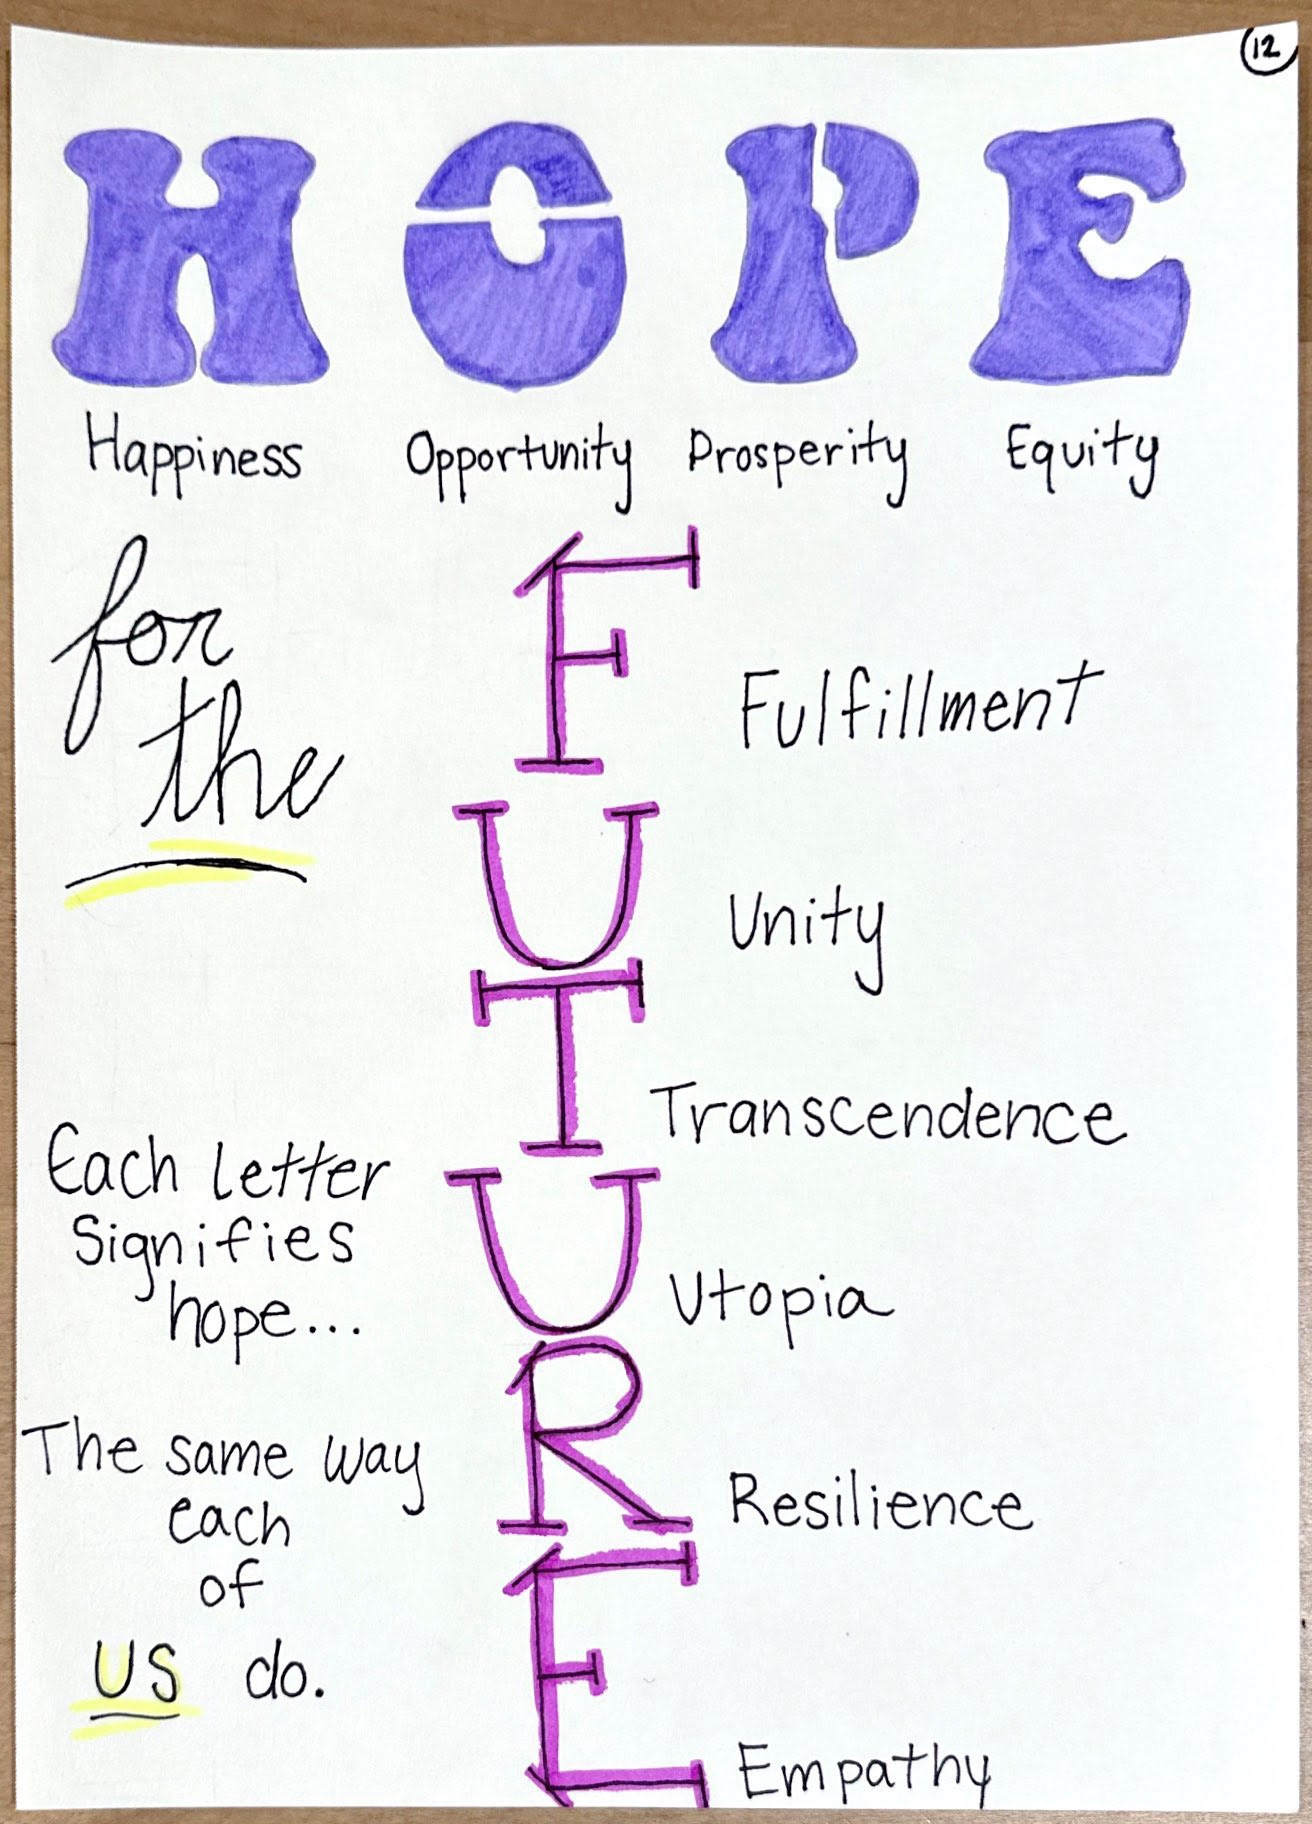 12
HOPE
Happiness Opportunity Prosperity Equity
for
the
FUTURE
Fulfillment
Unity
Transcendence
Utopia
Resilience
Empathy
Each letter
Signifies
hope...
The same way
each
of
US do.